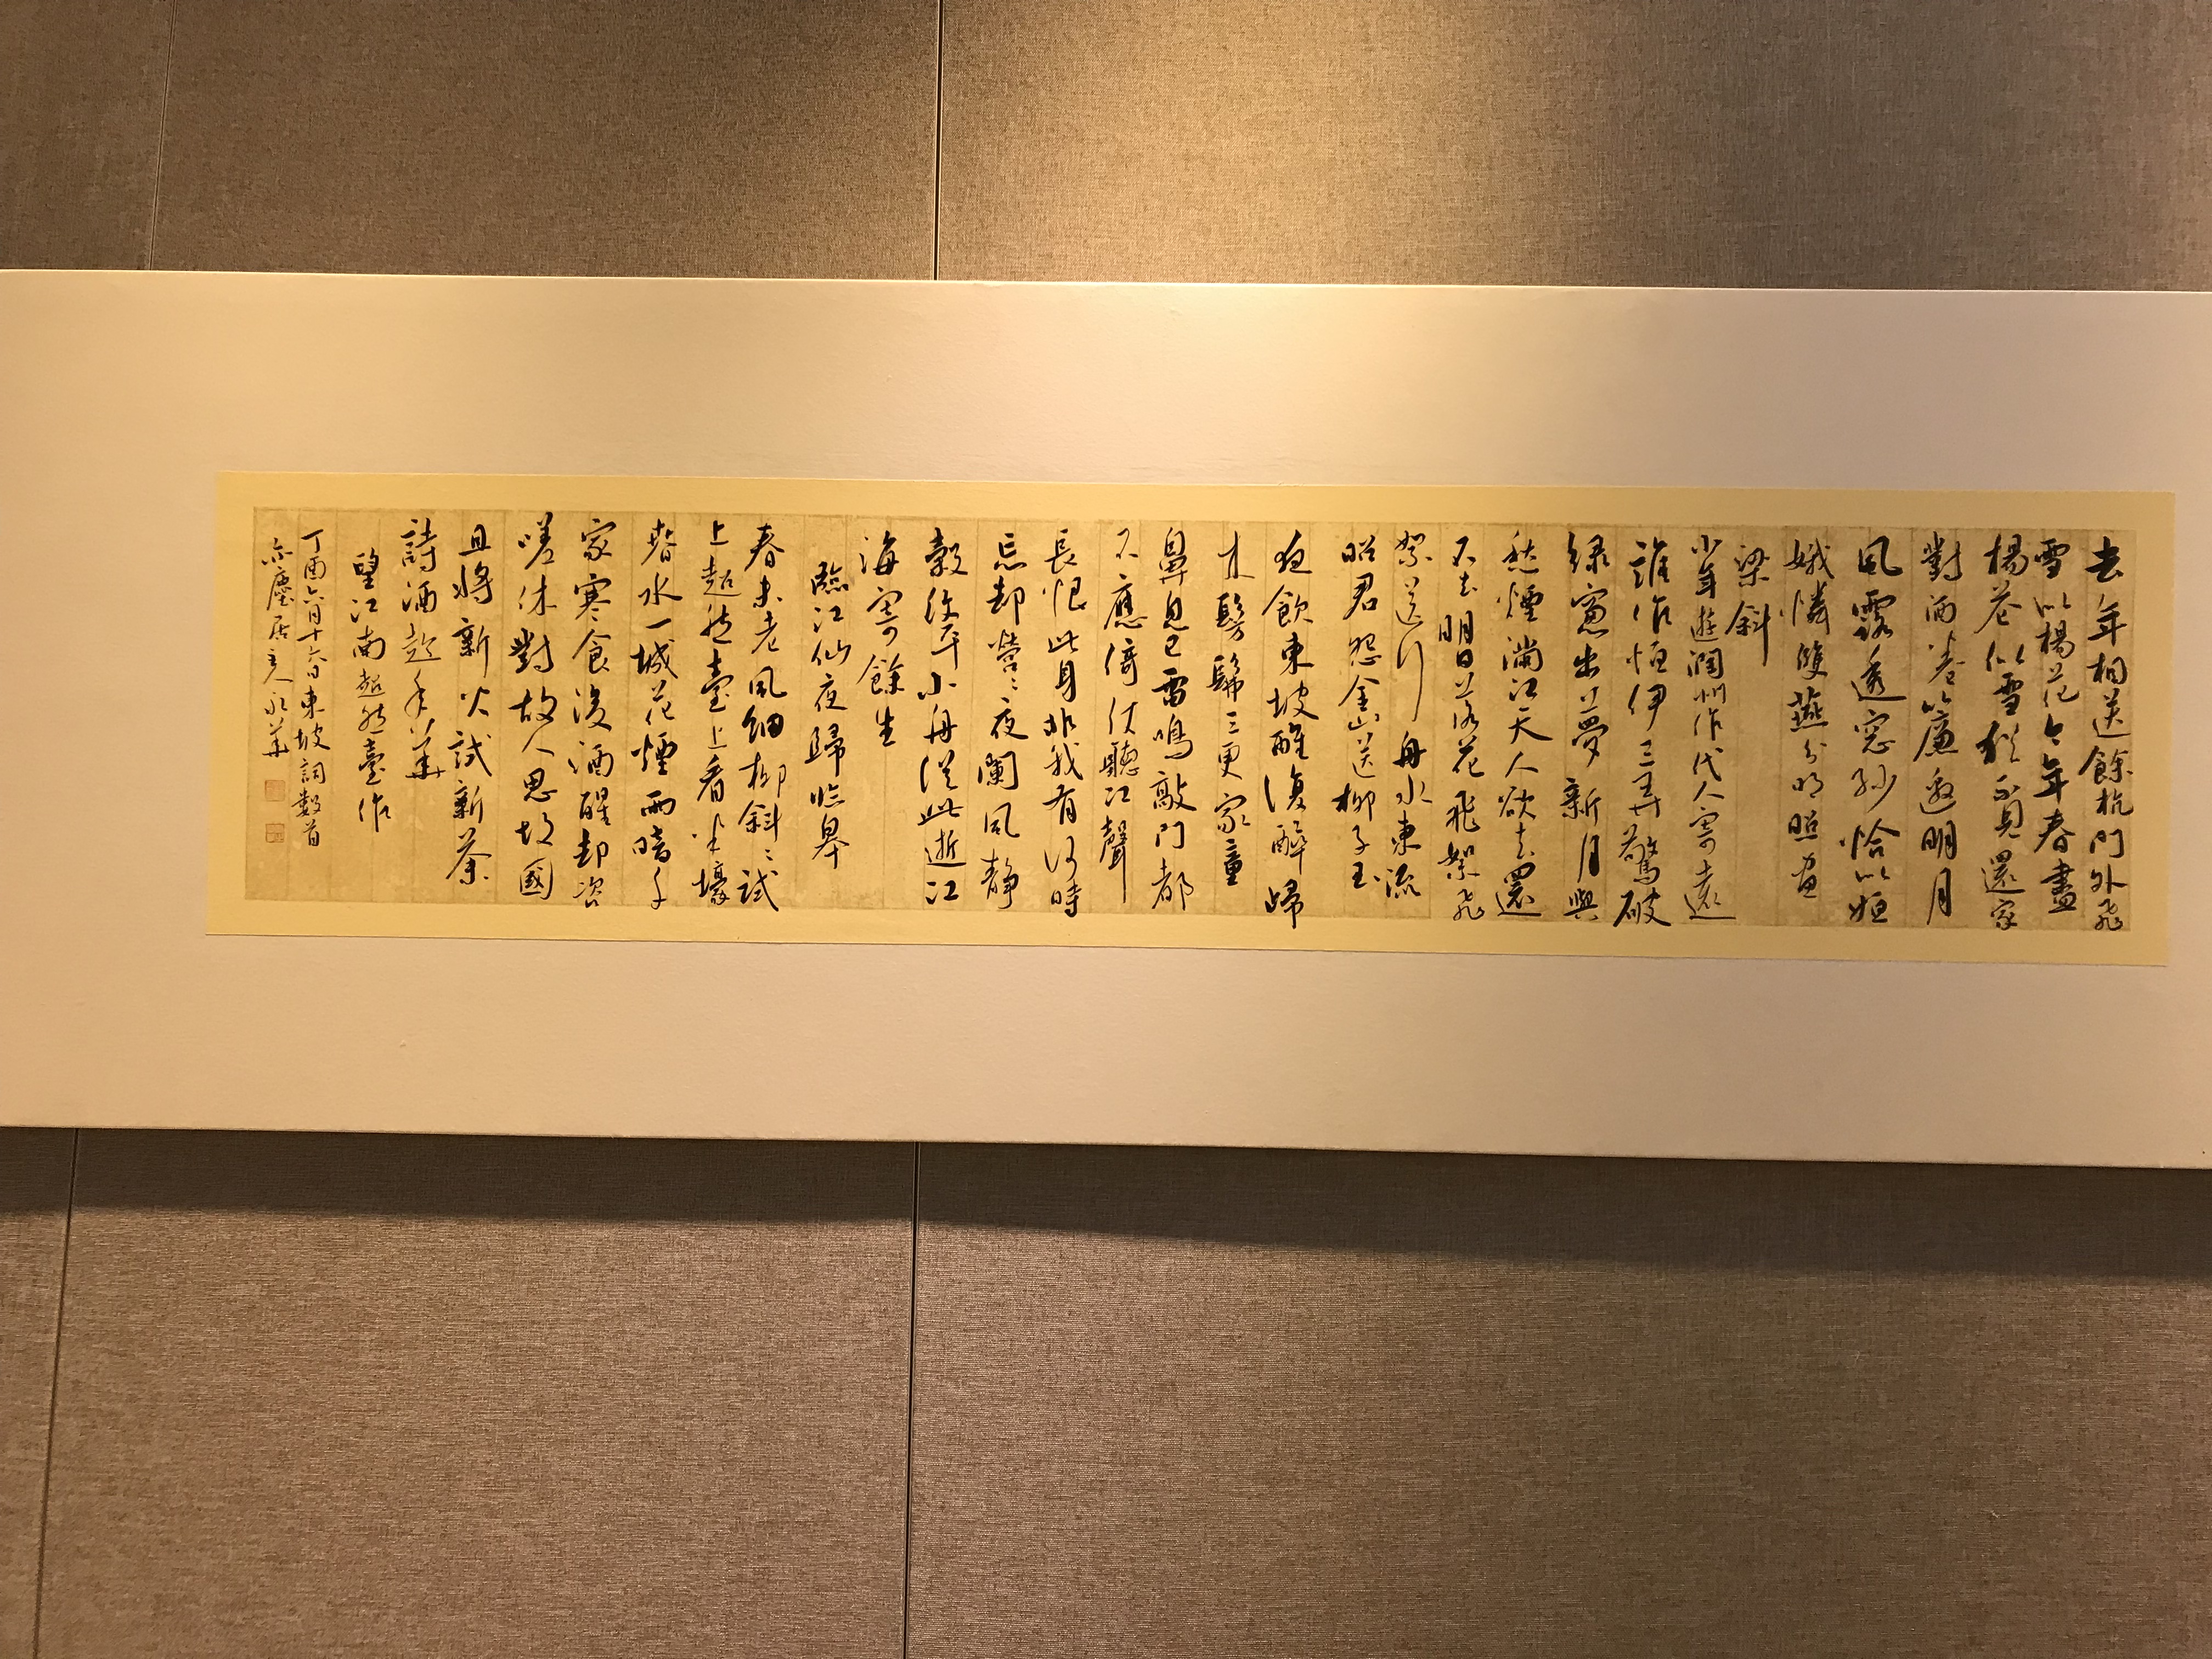 去年相送餘杭門外飛
雪似楊花今年春盡
楊花似雪猶不見還家
對酒捲簾邀明月
風露透窓紗恰似姮
娥憐雙燕分明照畫
梁斜
少年遊潤州作代人寄遠
誰作恒伊三弄驚破
綠窓幽夢新月與
愁煙滿江天人欲去還
不去明日落花飛絮飛
絮送行舟水東流
昭君怨金山送柳子玉
夜飲東坡醒復醉歸
来髣髴三更家童
鼻息已雷鳴敲門都
不應倚仗聽江聲
長恨此身非我有何時
忘却營〻夜闌風靜
縠紋平小舟從此逝江
海寄餘生
臨江仙夜歸臨皋
春未老風細柳斜〻試
上超然臺上看半壕
春水一城花煙雨暗千
家寒食後酒醒却咨
嗟休對故人思故國
且將新火試新茶
詩酒趁年華
望江南超然臺作
丁酉六月十六日東坡詞數首
亦塵居主人永華